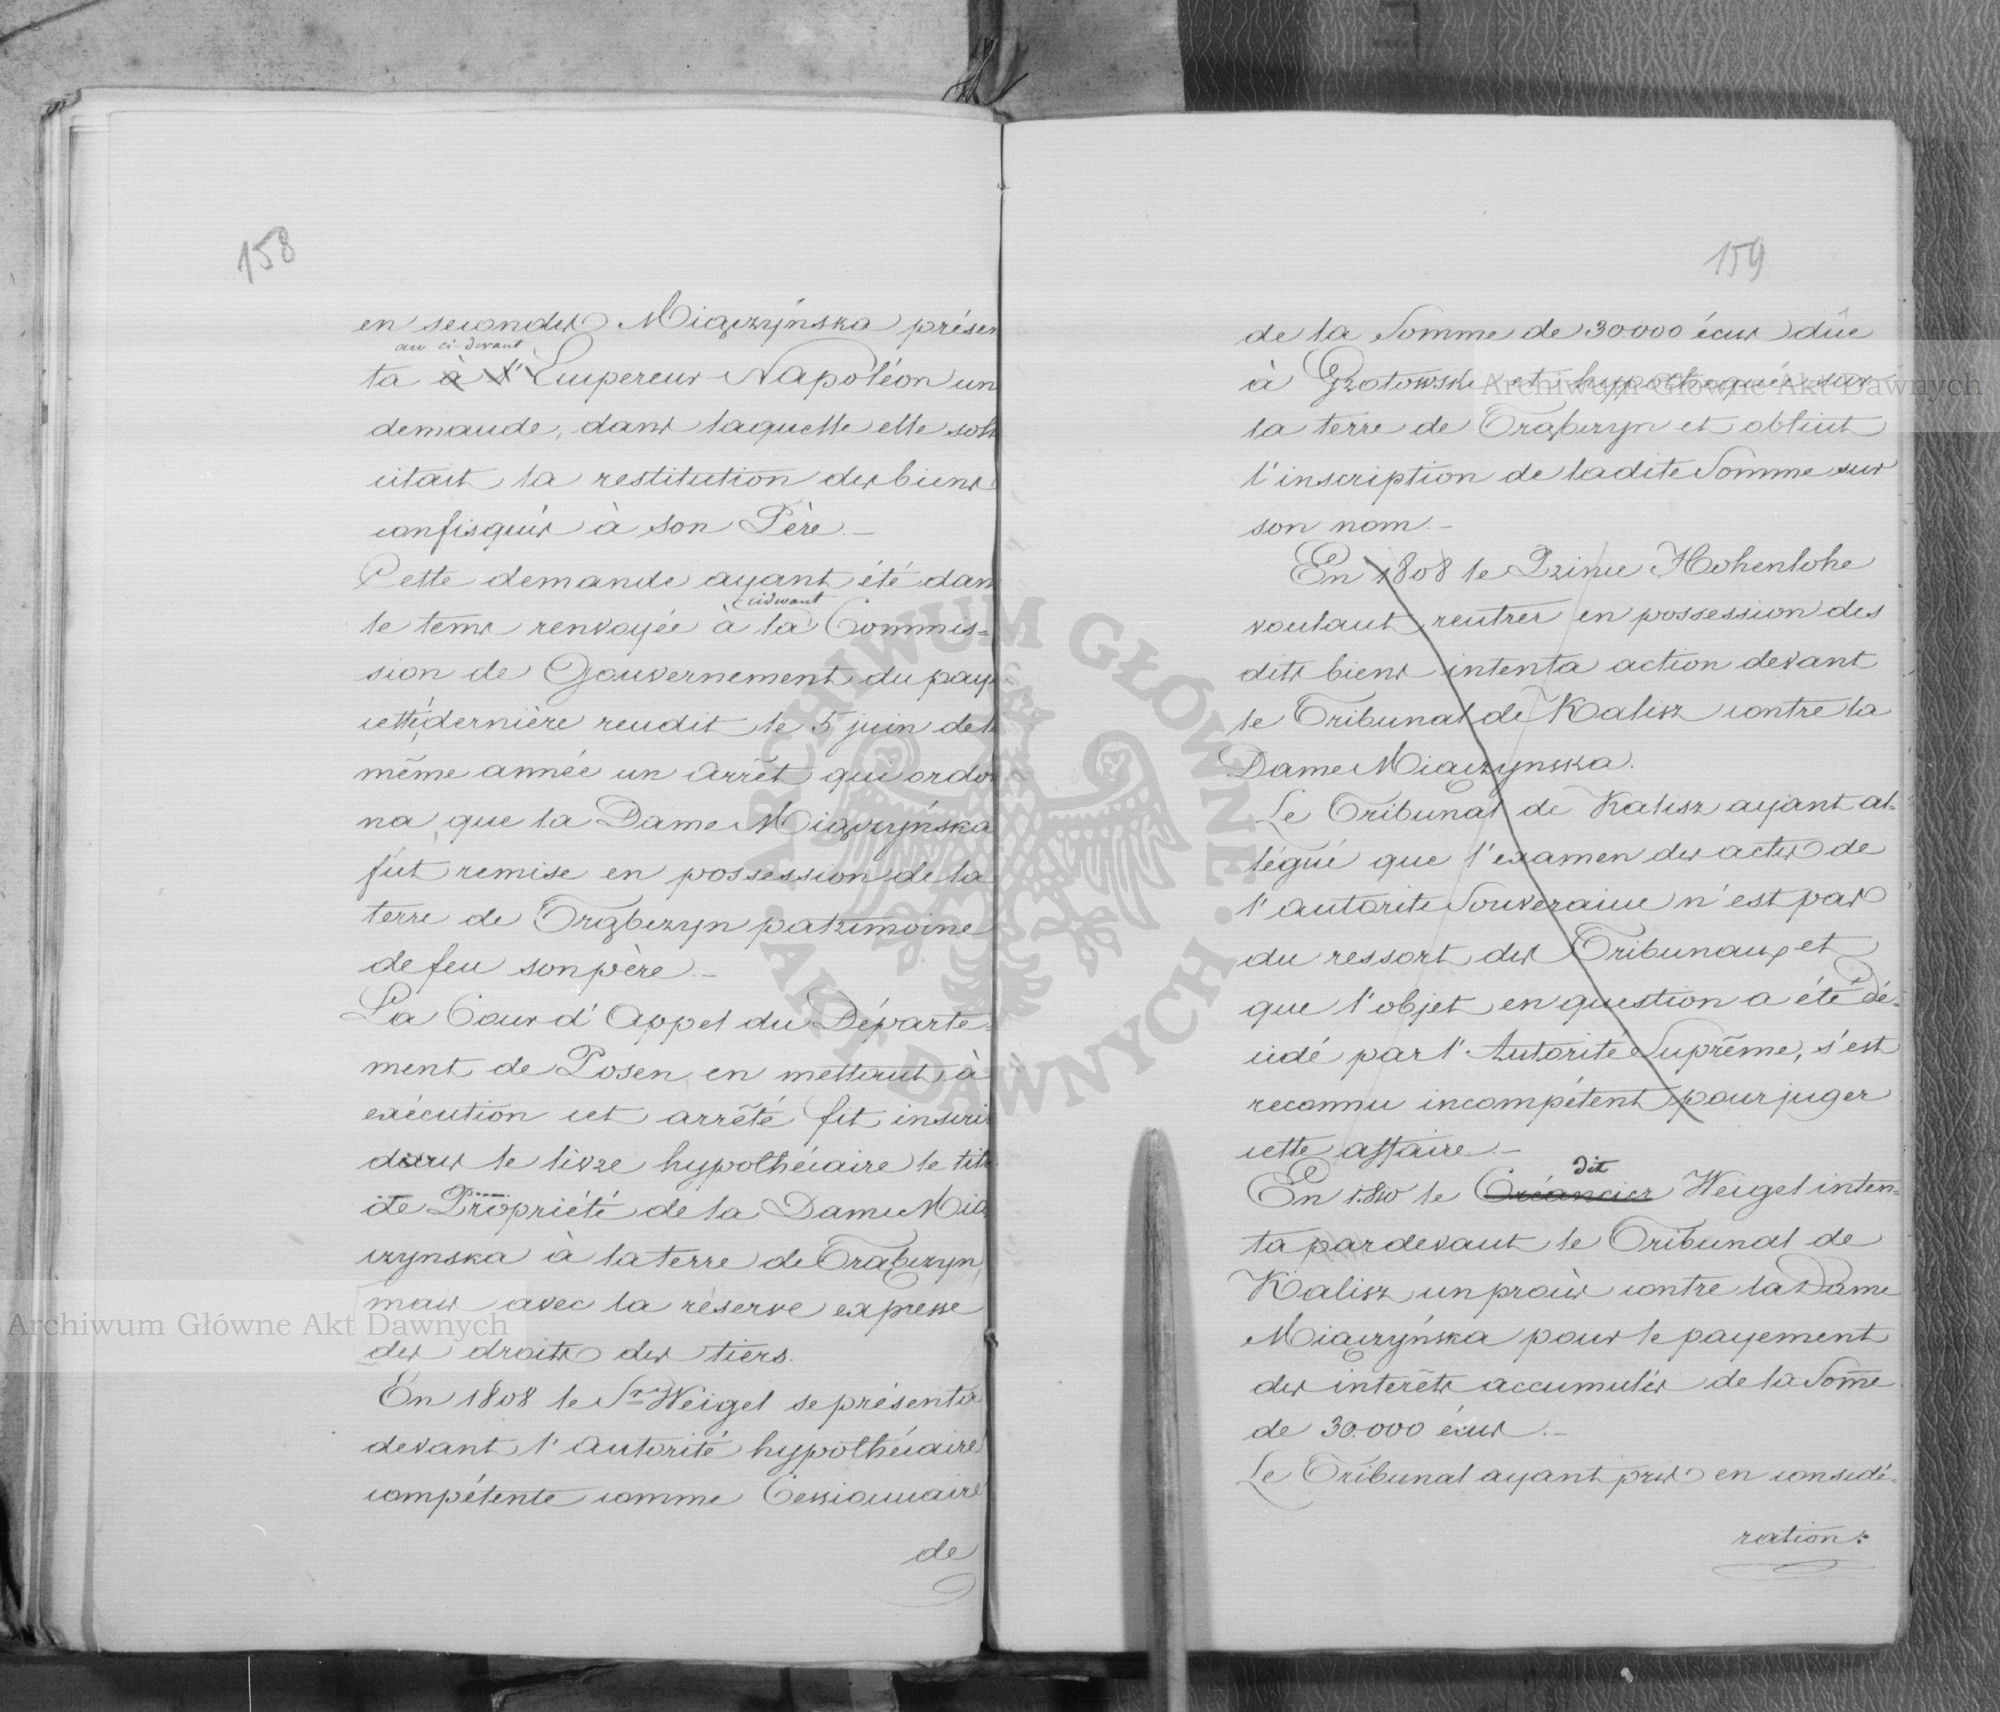 158
en secondes Miączyńska présen
au ci-devant
ta à l'Empereur Napoléon un
demande, dans laquelle elle solli
citait la restitution des biens
confisqués à son Père.–
Cette demande ayant été dans
cidevant
le tems renvoyée à la Commis=
sion de Gouvernement du pays
cette dernière rendit le 5 juin de la
même année un arrêt qui ordon
na que la Dame Miączyńska
fut remise en possession de la
terre de Trąbczyn patrimoine
de feu son père.–
La Cour d'Appel du Départe-
ment de Posen en mettant à
exécution cet arrêté fit inscri
dans le livre hypothécaire le tit
de Propriété de la Dame Mią
czynska à la terre de Trąbczyn
mais avec la réserve expresse
des droits des tiers.
En 1808 le Sr. Weigel se présenta
devant l'Autorité hypothécaire
compétente comme Cessionnaire
de
159
de la Somme de 30.000 écus dûe
à Grotowski et hypothequée sur
la terre de Trąbczyn et obtint
l'inscription de ladite Somme sur
son nom.–
En 1808 le Prince Hohenlohe
voulant rentrer en possession des
dits biens intenta action devant
le Tribunal de Kalisz contre la
Dame Miączynska.
Le Tribunal de Kalisz ayant al-
légué que l'examen des actes de
l'autorite Souveraine n'est pas
du ressort des Tribunaux et
que l'objet en question a été Dé=
cidé par l'Autorité Suprême, s'est
reconnu incompétent pour juger
cette affaire.–
dit
En 1810 le Créancier Weigel inten=
ta pardevant le Tribunal de
Kalisz un procès contre la Dame
Miączyńska pour le payement
des intérêts accumulés de la Some
de 30.000 écus.–
Le Tribunal ayant pris en considé-
ration:
Archiwum Główne Akt Dawnych
Archiwum Główne Akt Dawnych
ARCHIWUM GŁÓWNE · AKT DAWNYCH ·